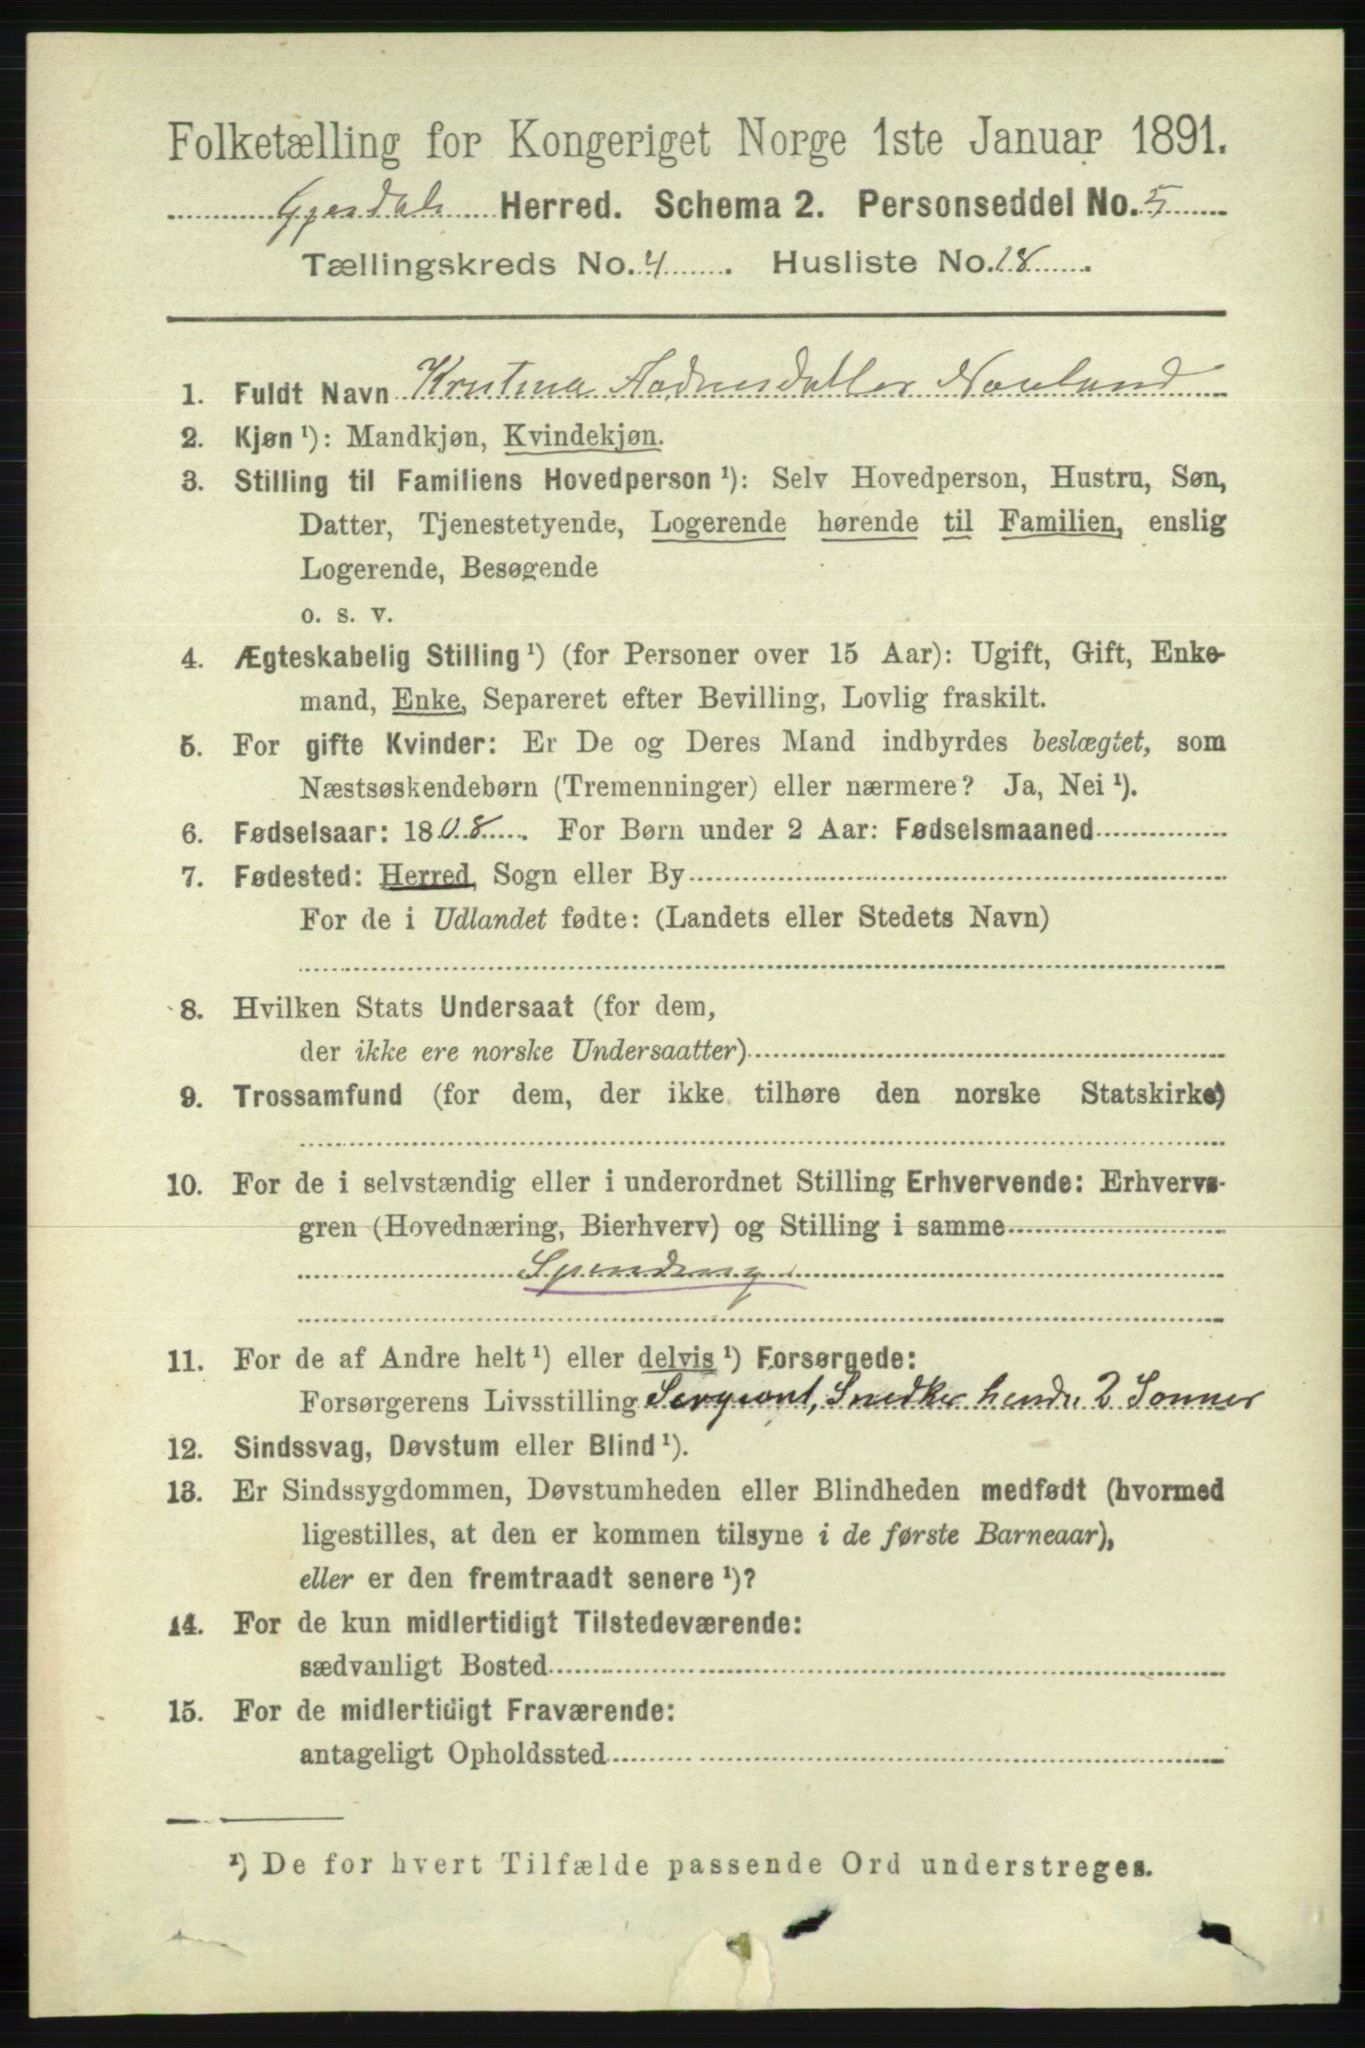 Folketælling for Kongeriget Norge 1ste Januar 1891.
Gjesdals Herred. Schema 2. Personseddel No. 5
Tællingskreds No. 4. Husliste No. 18.
1. Fuldt Navn Kristina Aadnesdatter Nouland
2. Kjøn ¹): Mandkjøn, Kvindekjøn.
3. Stilling til Familiens Hovedperson ¹): Selv Hovedperson, Hustru, Søn,
Datter, Tjenestetyende, Logerende hørende til Familien, enslig
Logerende, Besøgende
o. s. v.
4. Ægteskabelig Stilling ¹) (for Personer over 15 Aar): Ugift, Gift, Enke-
mand, Enke, Separeret efter Bevilling, Lovlig fraskilt.
5. For gifte Kvinder: Er De og Deres Mand indbyrdes beslægtet, som
Næstsøskendebørn (Tremenninger) eller nærmere? Ja, Nei ¹).
6. Fødselsaar: 1808. For Børn under 2 Aar: Fødselsmaaned
7. Fødested: Herred, Sogn eller By
For de i Udlandet fødte: (Landets eller Stedets Navn)
8. Hvilken Stats Undersaat (for dem,
der ikke ere norske Undersaatter)
9. Trossamfund (for dem, der ikke tilhøre den norske Statskirke)
10. For de i selvstændig eller i underordnet Stilling Erhvervende: Erhvervs-
gren (Hovednæring, Bierhverv) og Stilling i samme
Spinding
11. For de af Andre helt ¹) eller delvis ¹) Forsørgede:
Forsørgerens Livsstilling Sergeant, Snedker 2 Sønner
12. Sindssvag, Døvstum eller Blind ¹).
13. Er Sindssygdommen, Døvstumheden eller Blindheden medfødt (hvormed
ligestilles, at den er kommen tilsyne i de første Barneaar),
eller er den fremtraadt senere ¹)?
14. For de kun midlertidigt Tilstedeværende:
sædvanligt Bosted
15. For de midlertidigt Fraværende:
antageligt Opholdssted
¹) De for hvert Tilfælde passende Ord understreges.